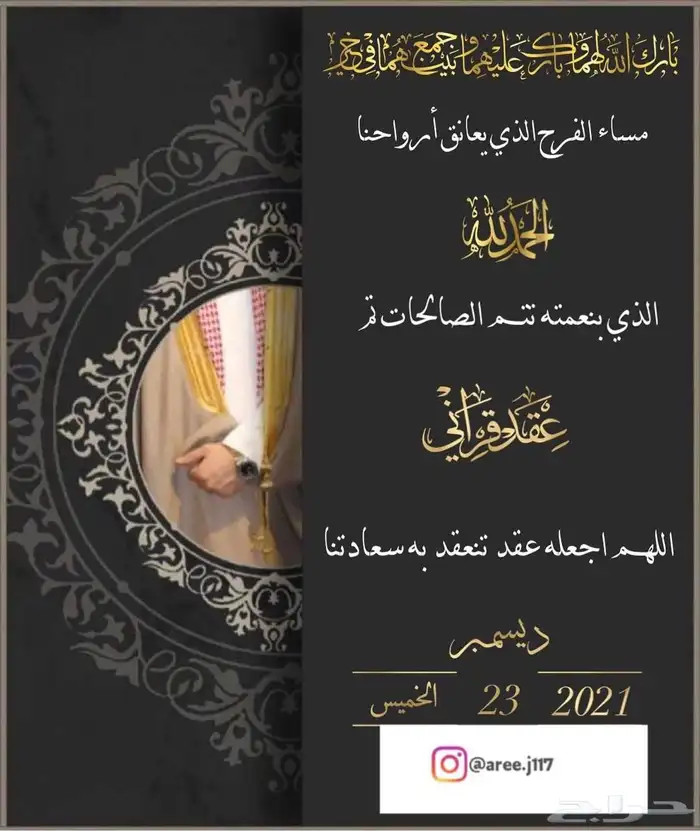 بارك الله لهما وبارك عليهما وجمع بينهما في خير
مساء الفرح الذي يعانق أرواحنا
الحمد لله
الذي بنعمته تتم الصالحات تم
عقد قراني
اللهم اجعله عقد تنعقد به سعادتنا
ديسمبر
الخميس 23 2021
@aree.j117
حراج